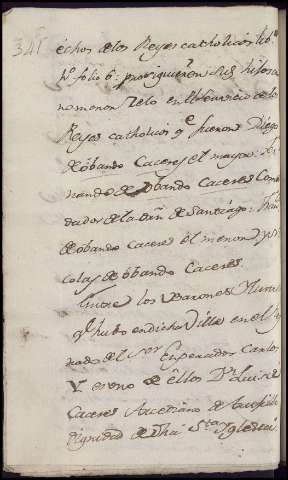 345
echos de los Reyes catholicos lib.
folio 6: prosiguieron sus hijos
no menor zelo en el servicio de los
Reyes catholicos q.e fueron Diego
de obando Caceres el mayor:
nando de obando Caceres Comen
dador de la orn de Santiago:
de obando Caceres el menor y Ni
colas de obando Caceres.
entre los Varones Ilustres
q.e hubo en dicha Villa en el Rey
nado del S.or Emperador Carlos
V es uno de ellos D.n Luis de
Caceres Arcediano de
dignidad de dha S.ta Iglesia